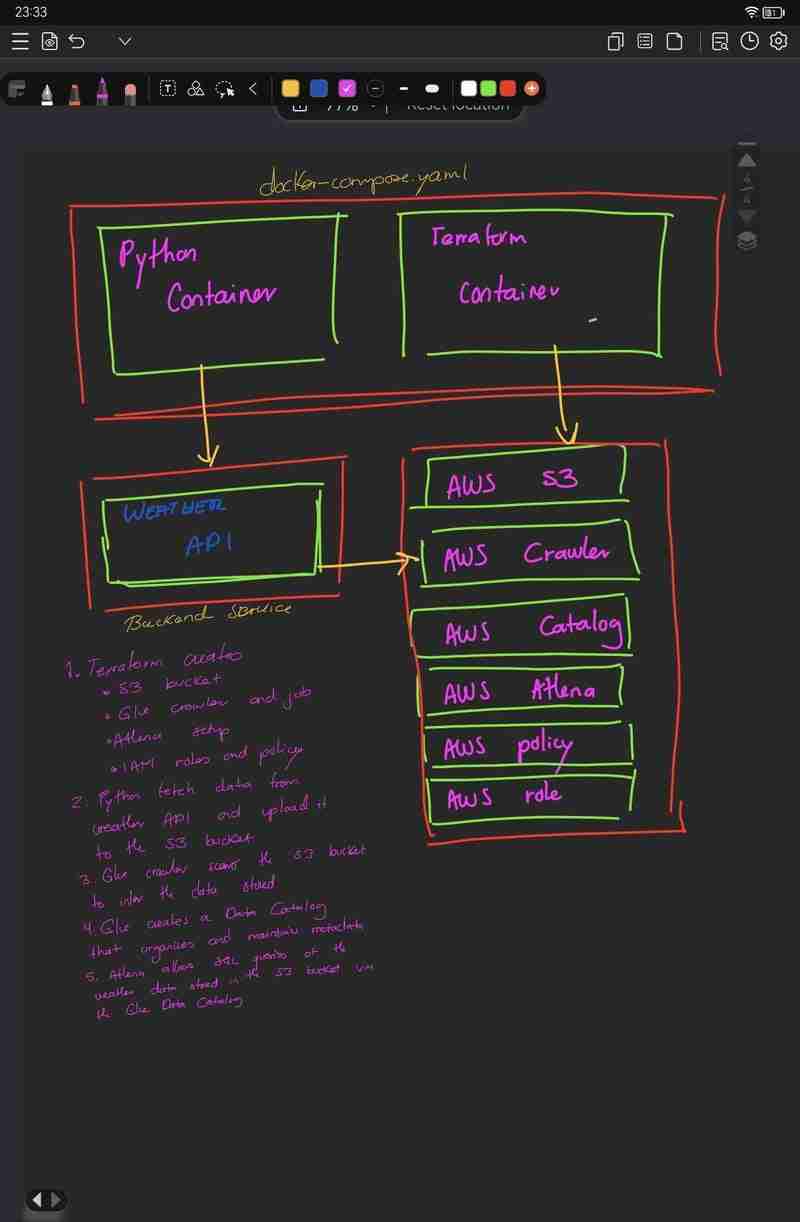 23:33
77%
Reset location
docker-compose.yaml
Python
Container
Terraform
Container
WEATHER
API
Backend service
AWS S3
AWS Crawler
AWS Catalog
AWS Athena
AWS policy
AWS role
1. Terraform creates
• S3 bucket
• Glue crawler and job
• Athena setup
• IAM roles and policy
2. Python fetch data from
weather API and upload it
to the S3 bucket
3. Glue crawler scans the S3 bucket
to infer the data stored
4. Glue creates a Data Catalog
that organizes and maintain metadata
5. Athena allows SQL queries of the
weather data stored in the S3 bucket via
the Glue Data Catalog